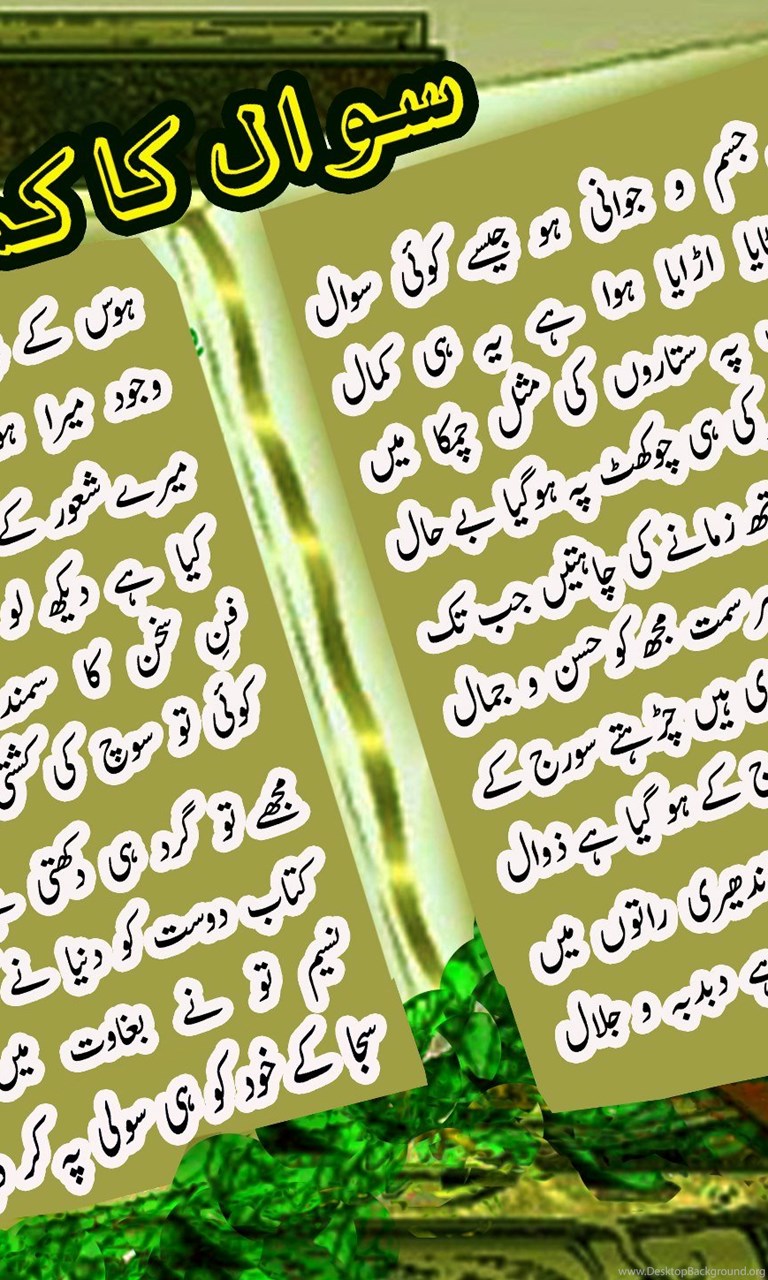 سوال کا
جسم و جوانی ہو جیسے کوئی سوال
اڑایا ہوا ہے یہ ہی کمال
پہ ستاروں کی مثل چمکا میں
کی ہی چوکھٹ پہ ہوگیا بے حال
زمانے کی چاہتیں جب تک
سمت مجھ کو حسن و جمال
ہیں چڑہتے سورج کے
کے ہو گیا ہے ذوال
راتوں میں
ہے دبدبہ و جلال
ہوس کے
وجود میرا
میرے شعور کے
کیا ہے دیکھ لو
فنِ سخن کا سمند
کوئی تو سوچ کی کشتی
مجھے تو گرد ہی دکھتی
کتاب دوست کو دنیا نے
نسیم تو نے بغاوت میں
سجا کے خود کو ہی سولی پہ کر
www.DesktopBackground.org